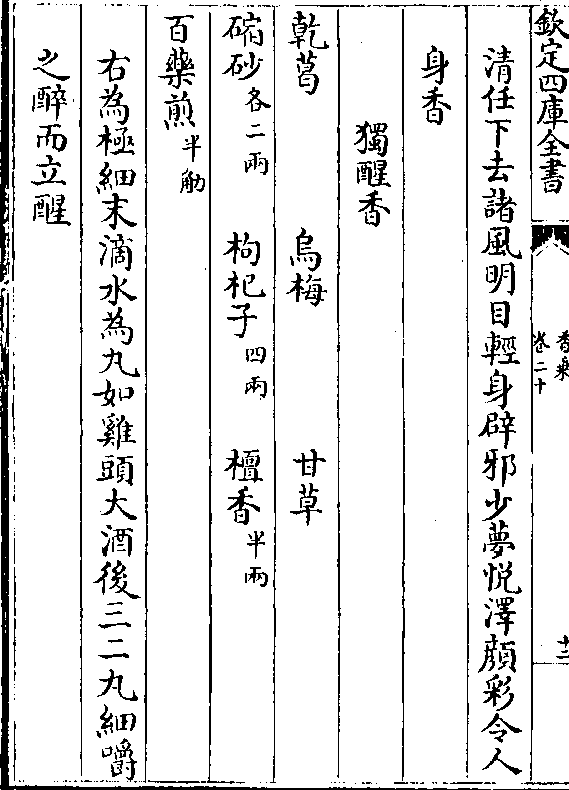 欽定四庫全書
香乘
卷二十
十二
清任下去諸風明目輕身辟邪少夢悦澤顔彩令人
身香
獨醒香
乾葛 烏梅 甘草
硇砂各二兩 枸杞子四兩 檀香半兩
百藥煎半觔
右為極細末滴水為丸如雞頭大酒後三二丸細嚼
之醉而立醒